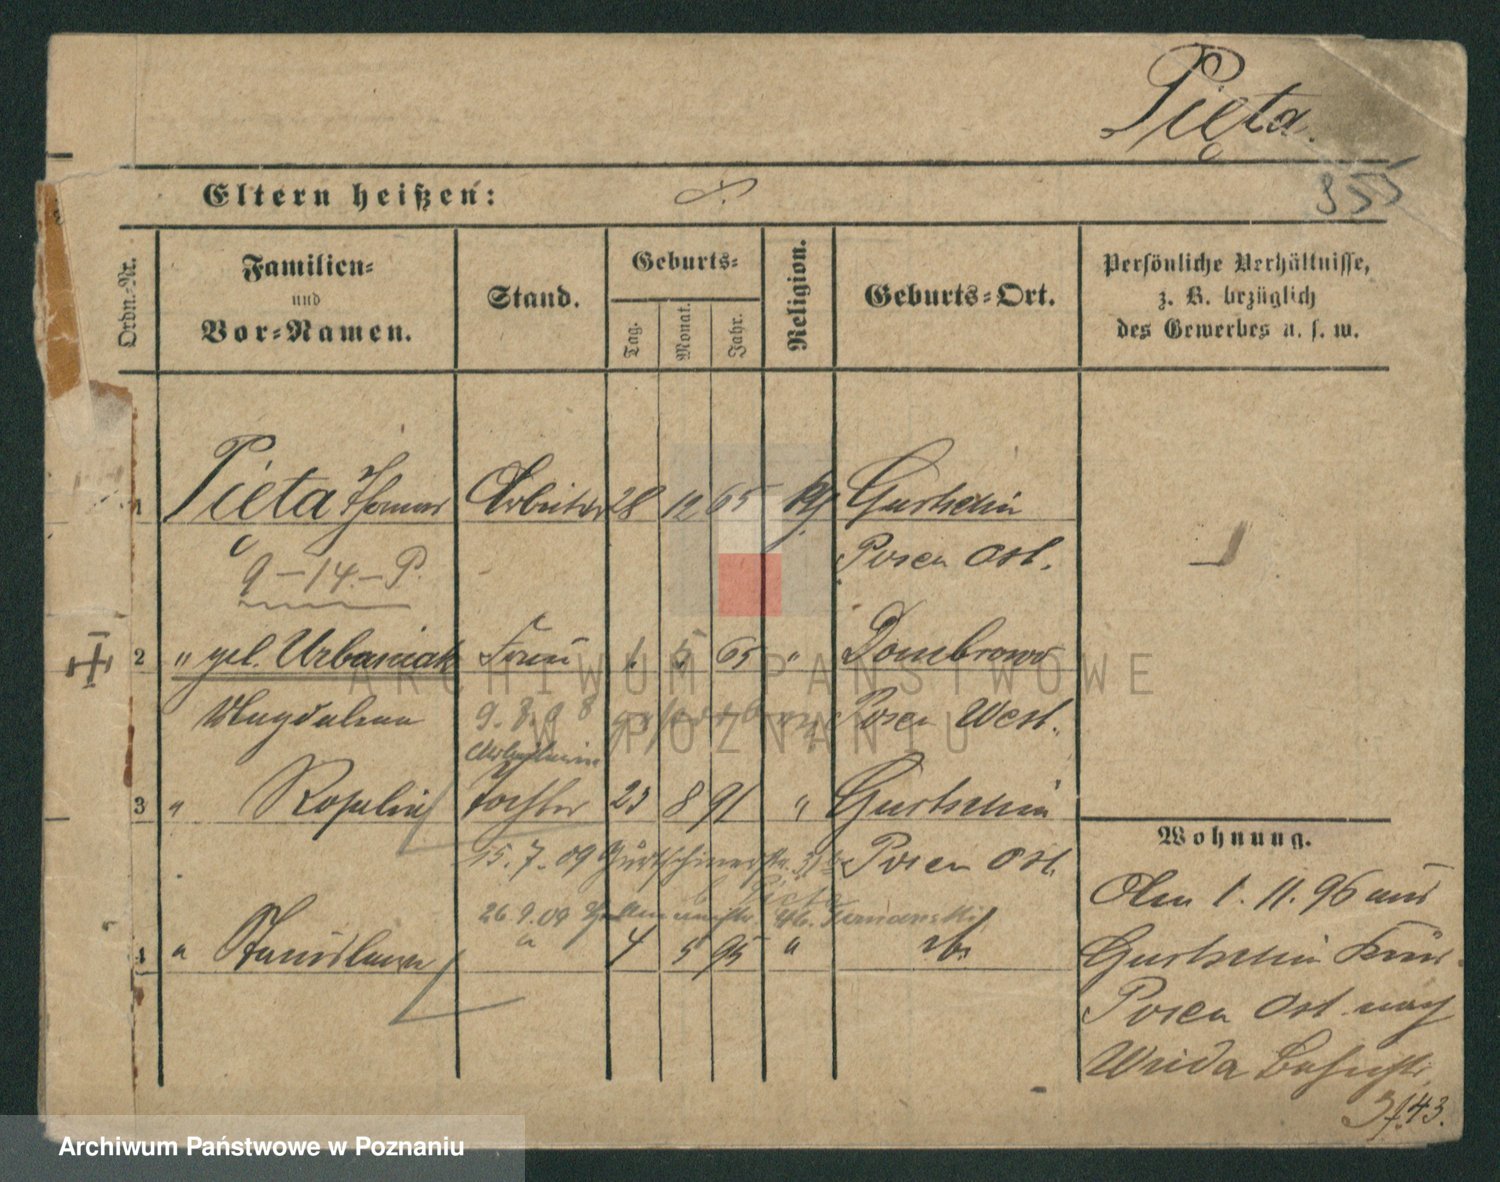 Pięta.
355
Eltern heißen:
Ordn.-Nr.
Familien-
und
Vor-Namen.
Stand.
Geburts-
Tag.
Monat.
Jahr.
Religion.
Geburts-Ort.
Persönliche Verhältnisse,
z. B. bezüglich
des Gewerbes u. s. w.
1 Pięta Thomas Arbeiter 28 12 65 Gurtschin
Posen Ost.
9-14.-P.
2 " geb. Urbaniak Frau 1. 5 65 " Dombrowo
Magdalena 9. 8. 98 gestorben Posen West.
Arbeiterin
3 " Rosalie Tochter 23 8 91 " Gurtschin
15. 7. 09 Gurtschinerstr. Posen Ost.
b. Pięta
26.9.09
4 " Stanislawa " 4 5 95 "
Wohnung.
Den 1. 11. 96 aus
Gurtschin Kreis
Posen Ost nach
Wilda Bahnstr.
43.
ARCHIWUM PAŃSTWOWE
W POZNANIU
Archiwum Państwowe w Poznaniu